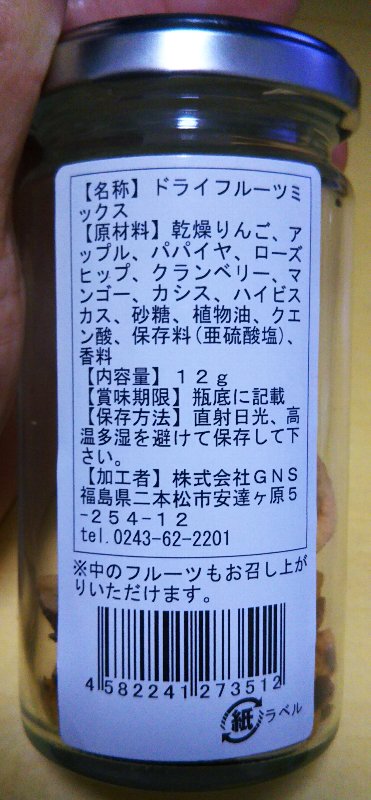 【名称】ドライフルーツミ
ックス
【原材料】乾燥りんご、ア
ップル、パパイヤ、ローズ
ヒップ、クランベリー、マ
ンゴー、カシス、ハイビス
カス、砂糖、植物油、クエ
ン酸、保存料(亜硫酸塩)、
香料
【内容量】１２ｇ
【賞味期限】瓶底に記載
【保存方法】直射日光、高
温多湿を避けて保存して下
さい。
【加工者】株式会社ＧＮＳ
福島県二本松市安達ヶ原５
-２５４-１２
tel.0243-62-2201
※中のフルーツもお召し上が
りいただけます。
4 582241 273512
紙 ラベル